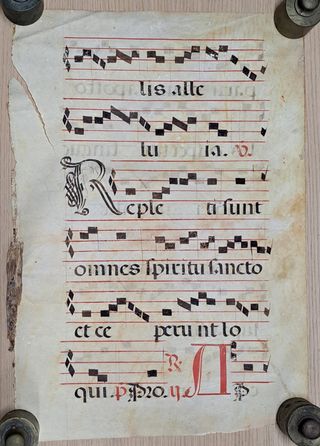 lis alle
lu ia. ℣.
Reple ti sunt
omnes spiritu sancto
et ce perunt lo
qui. p̄ Pro. ij. ℟ A p